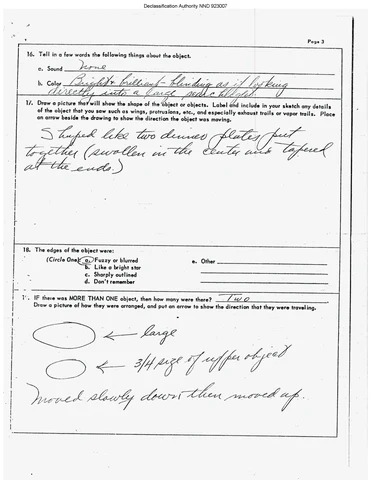 Declassification Authority NND 923007
Page 3
16. Tell in a few words the following things about the object.
a. Sound None
b. Color Bright & brilliant - blinding as if looking
directly into a large search light.
17. Draw a picture that will show the shape of the object or objects. Label and include in your sketch any details
of the object that you saw such as wings, protrusions, etc., and especially exhaust trails or vapor trails. Place
an arrow beside the drawing to show the direction the object was moving.
Shaped like two dinner plates put
together (swollen in the center and tapered
at the ends.)
18. The edges of the object were:
(Circle One) a. Fuzzy or blurred e. Other
b. Like a bright star
c. Sharply outlined
d. Don't remember
IF there was MORE THAN ONE object, then how many were there? Two
Draw a picture of how they were arranged, and put an arrow to show the direction that they were traveling.
large
3/4 size of upper object
Moved slowly down then moved up.